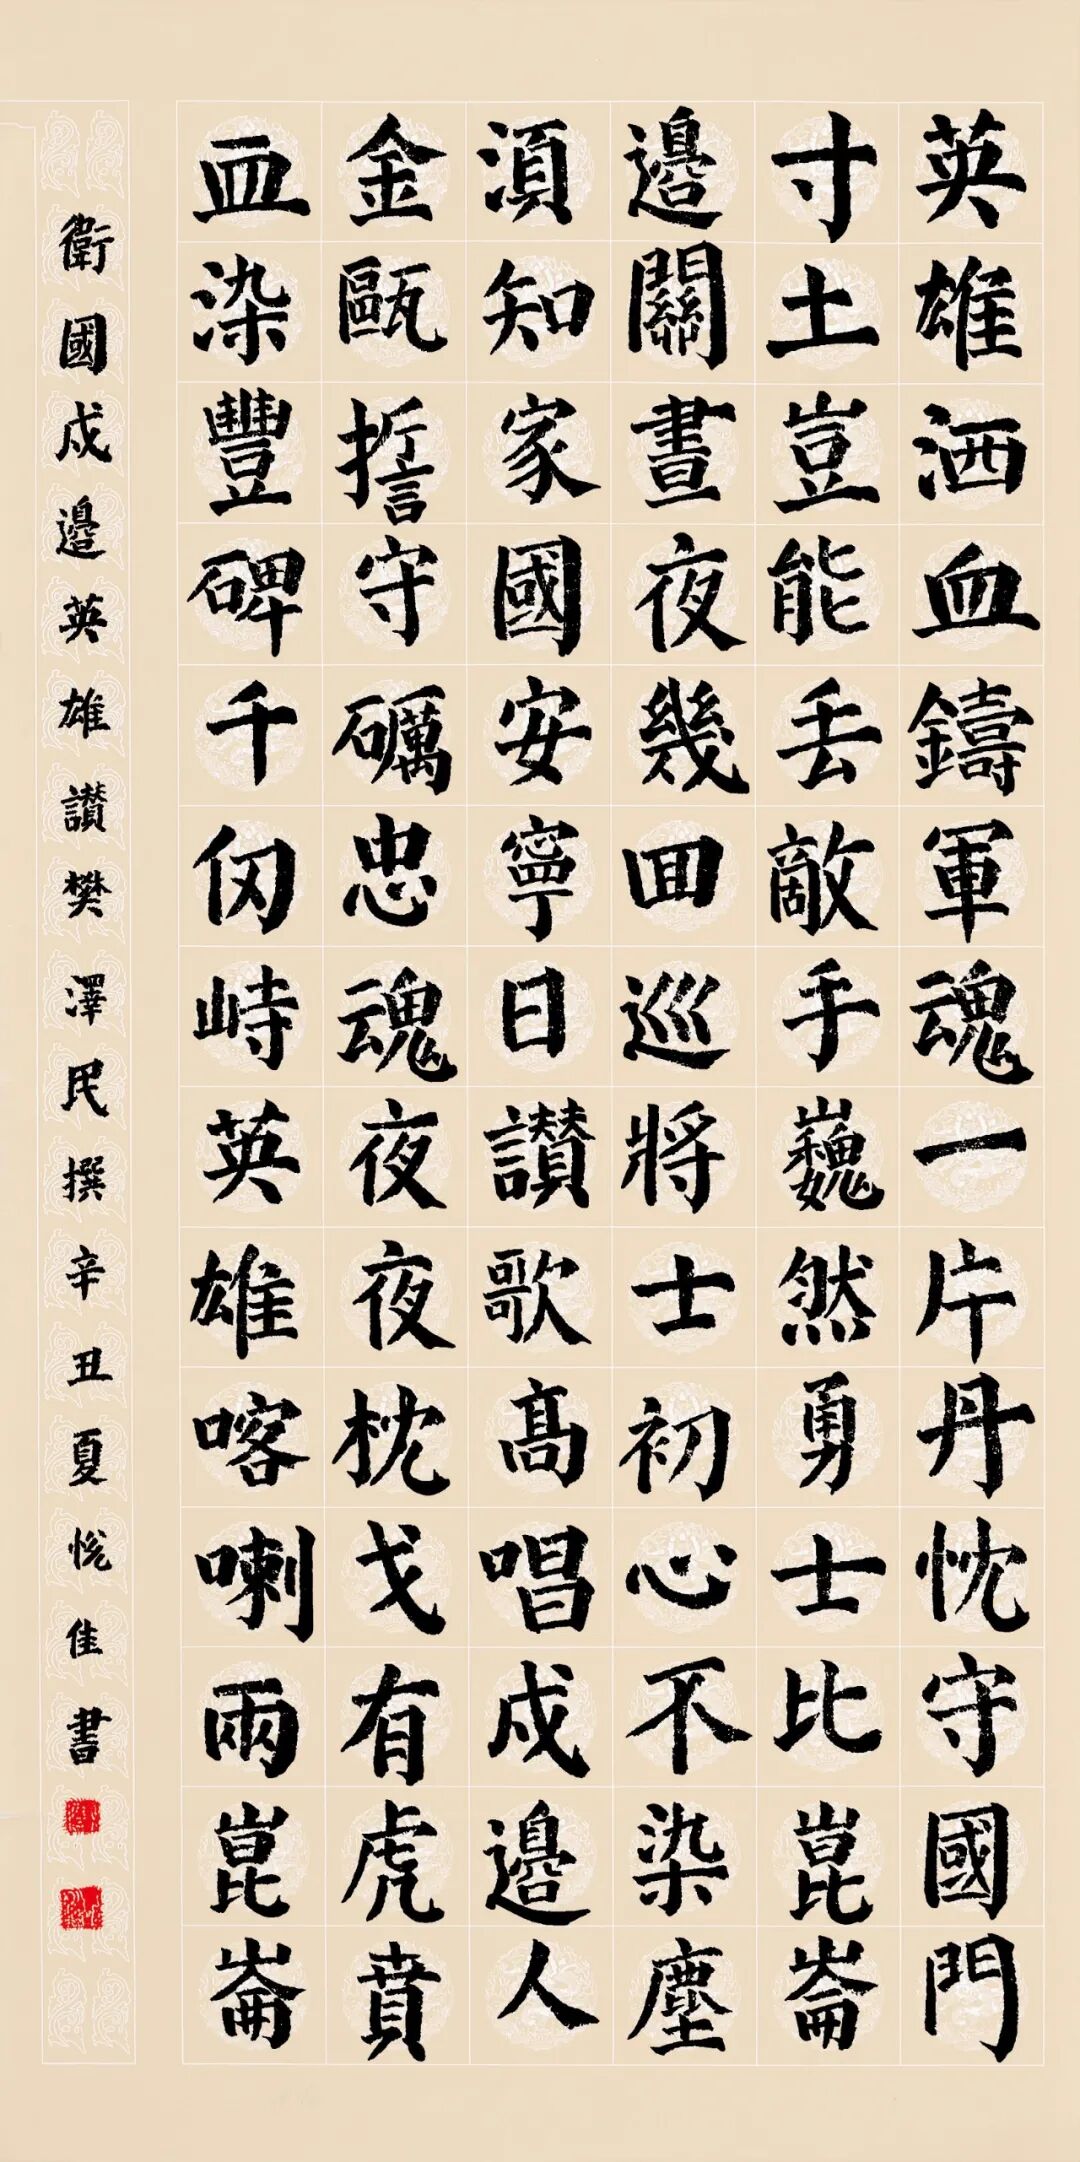 英雄洒血鑄軍魂一片丹忱守國門
寸土豈能丟敵手巍然勇士比崑崙
邊關晝夜幾回巡將士初心不染塵
須知家國安寧日讚歌高唱戍邊人
金甌誓守礪忠魂夜夜枕戈有虎賁
血染豐碑千仞峙英雄喀喇兩崑崙
衛國戍邊英雄讚樊澤民撰辛丑夏悅佳書